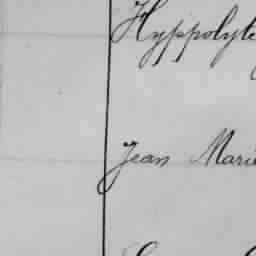 Hyppolyte
Jean Marie